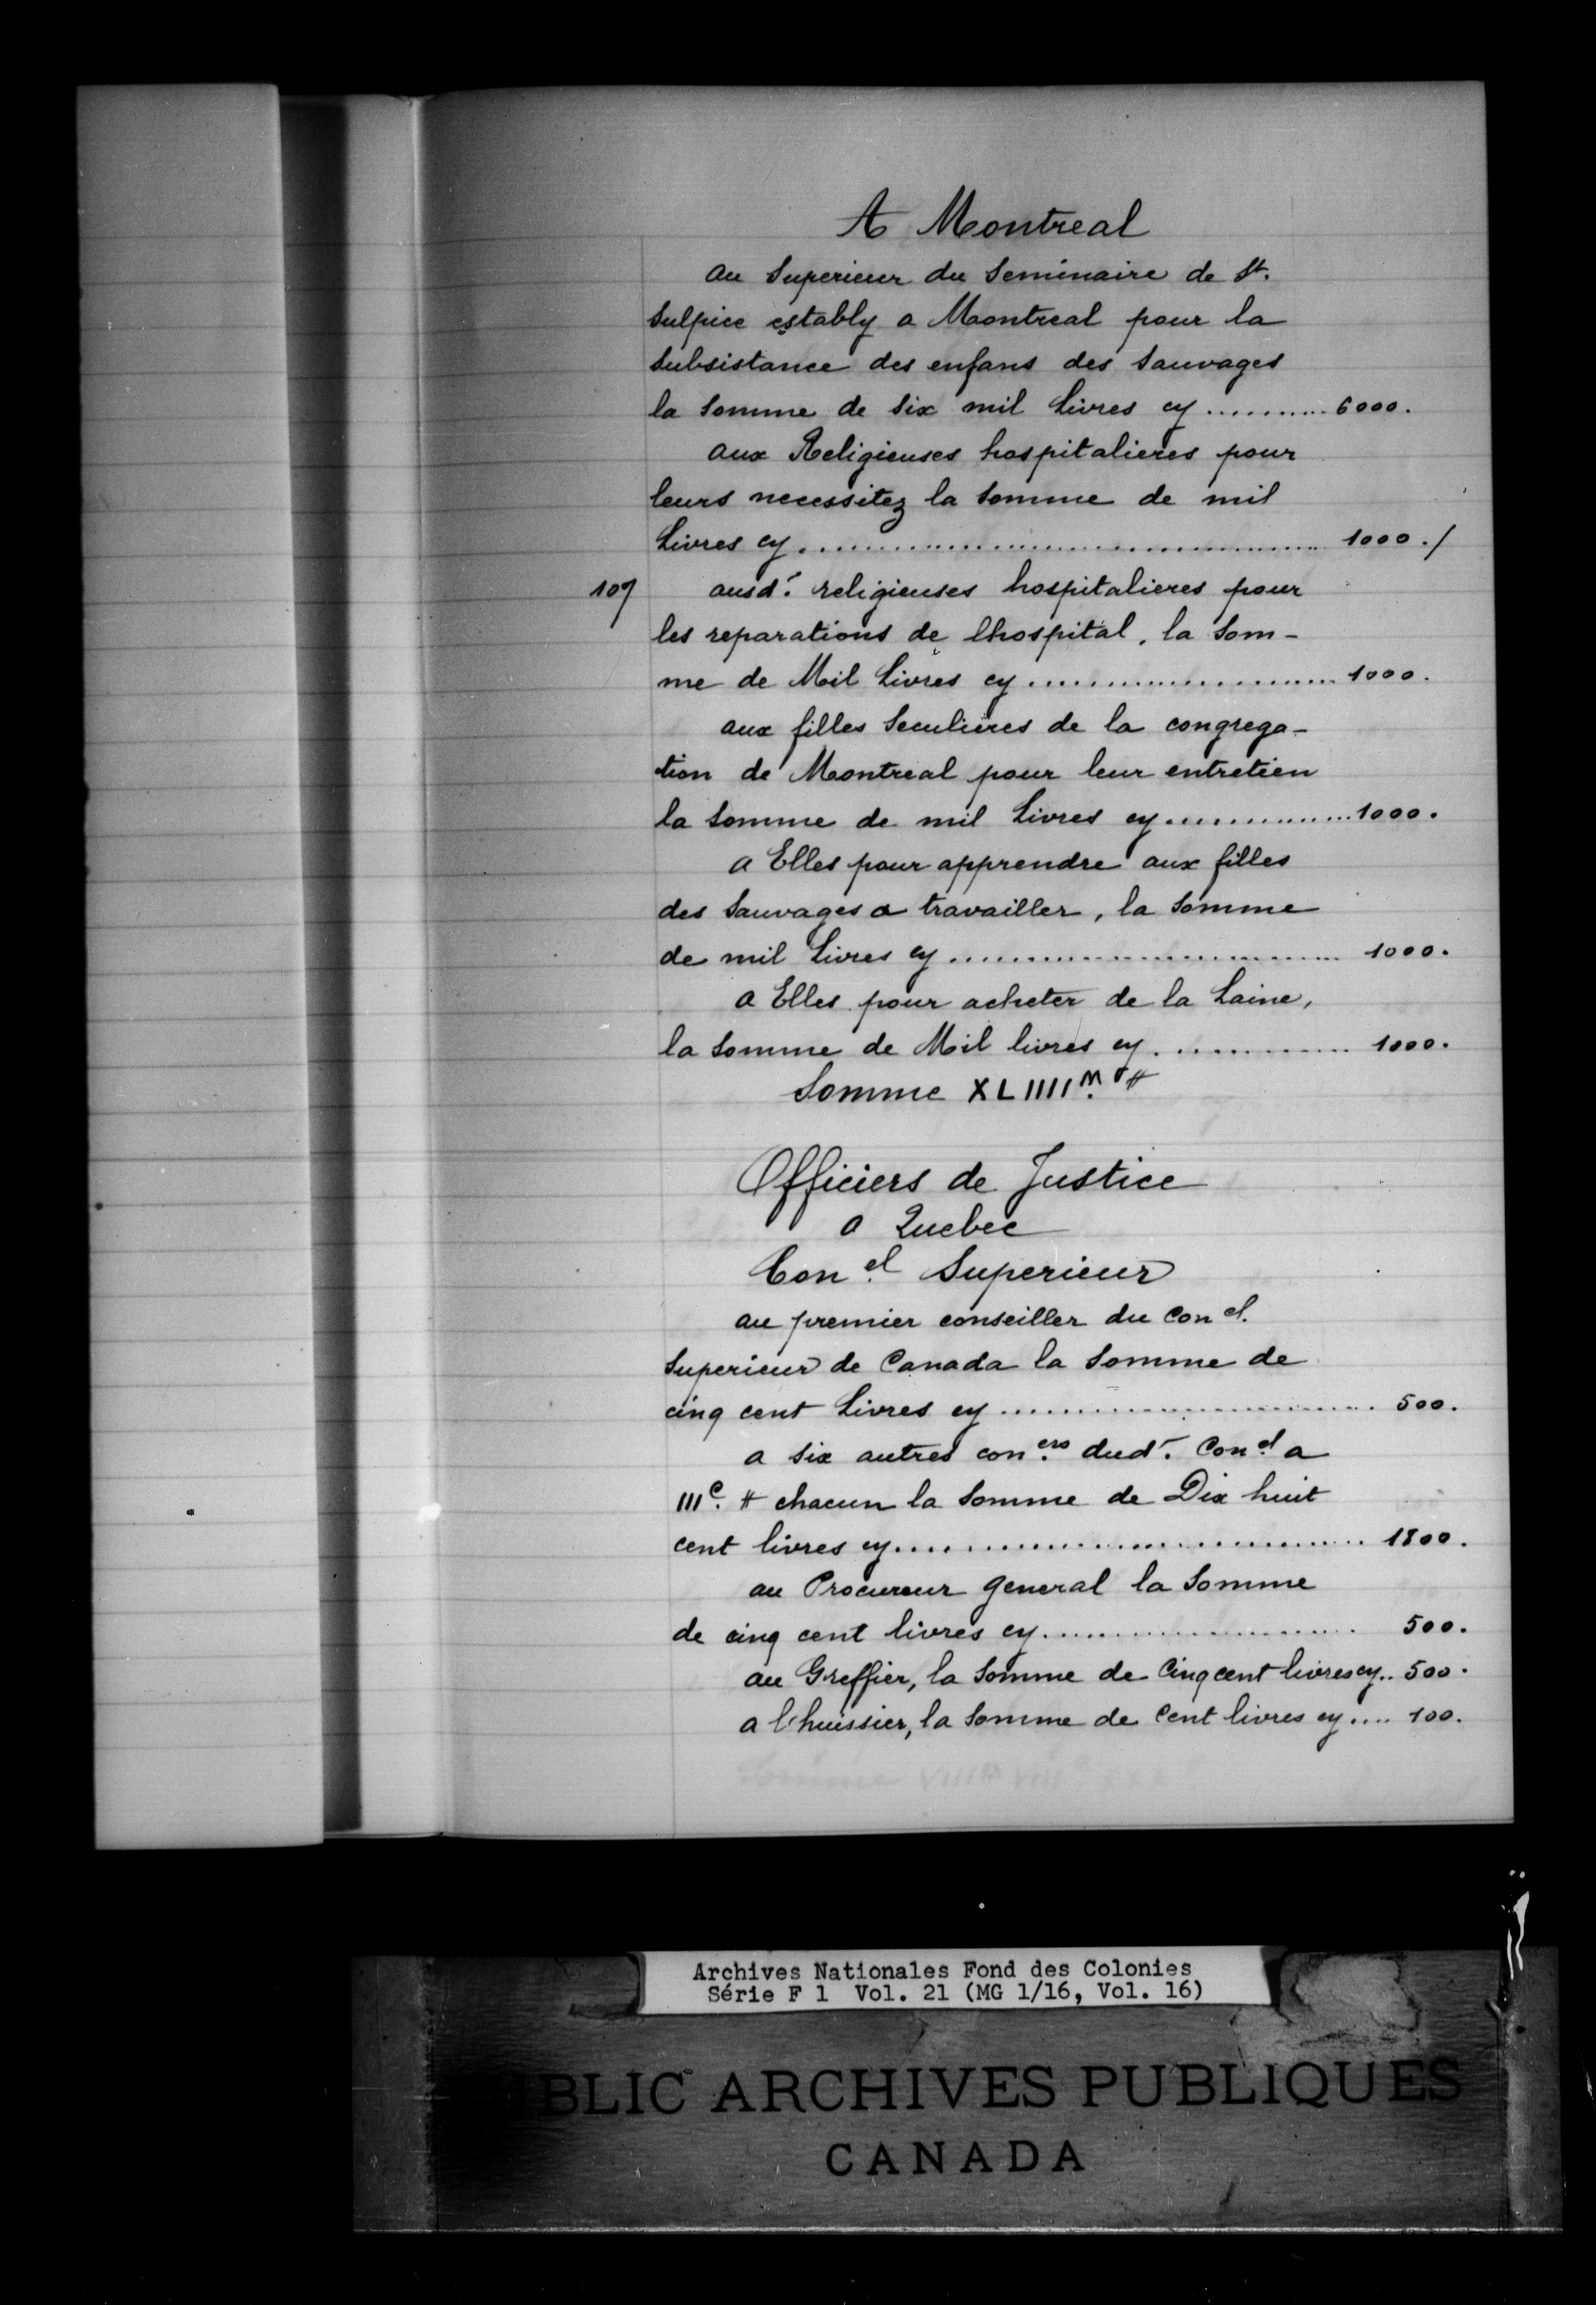 A Montreal
au Superieur du Seminaire de St.
Sulpice estably a Montreal pour la
subsistance des enfans des Sauvages
la Somme de six mil Livres cy .......... 6000.
aux Religieuses hospitalieres pour
leurs necessitez la Somme de mil
Livres cy .......... 1000./
107 ausd. religieuses hospitalieres pour
les reparations de lhospital, la Som-
me de Mil Livres cy .......... 1000.
aux filles Seculieres de la congrega-
tion de Montreal pour leur entretien
la Somme de mil Livres cy .......... 1000.
a Elles pour apprendre aux filles
des Sauvages a travailler, la Somme
de mil Livres cy .......... 1000.
a Elles pour acheter de la Laine,
la Somme de Mil livres cy .......... 1000.
Somme XLIIII M. ₶
Officiers de Justice
a Quebec
Con el Superieur
au premier conseiller du Con el.
Superieur de Canada la Somme de
cinq cent Livres cy .......... 500.
a six autres con.ers dud. Con.el a
IIIc. ₶ chacun la Somme de Dix huit
cent livres cy .......... 1800.
au Procureur general la Somme
de cinq cent livres cy .......... 500.
au Greffier, la Somme de Cinq cent livres cy .. 500.
a l'huissier, la Somme de Cent livres cy .... 100.
Archives Nationales Fond des Colonies
Série F 1 Vol. 21 (MG 1/16, Vol. 16)
BLIC ARCHIVES PUBLIQUES
CANADA